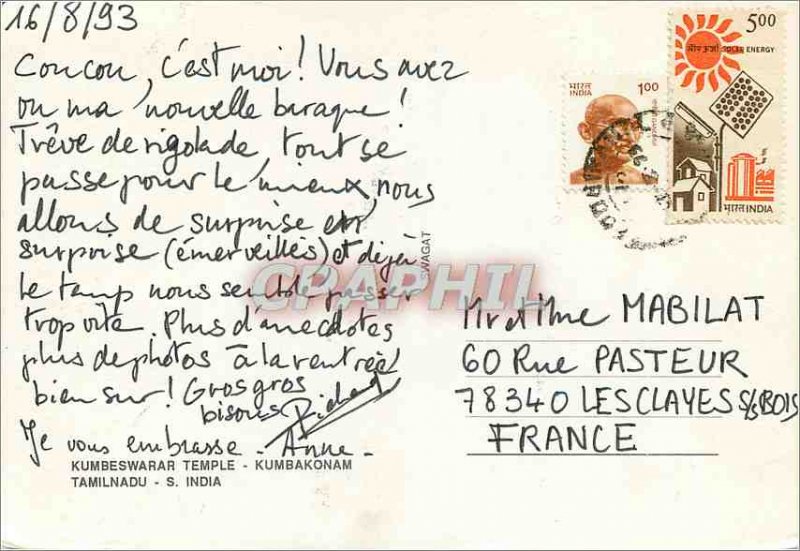 16/8/93
Coucou, c'est moi! Vous avez
vu ma nouvelle baraque!
Trêve de rigolade, tout se
passe pour le mieux, nous
allons de surprise en
surprise (émerveillés) et déjà
le temps nous semble passer
trop vite. Plus d'anecdotes
plus de photos à la rentrée
bien sur! Gros gros
bisous Richard
Je vous embrasse - Anne -
KUMBESWARAR TEMPLE - KUMBAKONAM
TAMILNADU - S. INDIA
SWAGAT
CPAPHIL
भारत 1.00
INDIA
5.00
सौर ऊर्जा SOLAR ENERGY
भारत INDIA
Mr et Mme MABILAT
60 Rue PASTEUR
78340 LES CLAYES S/S BOIS
FRANCE